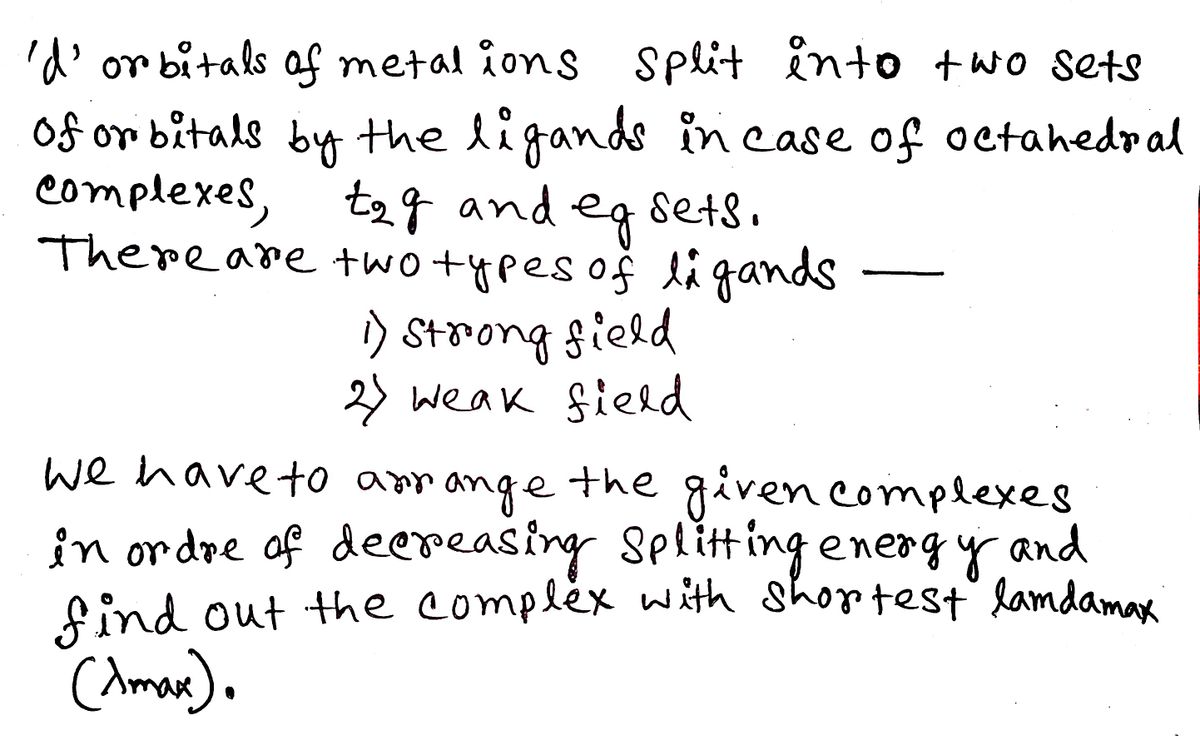 'd' orbitals of metal ions split into two sets
of orbitals by the ligands in case of octahedral
complexes, t2g and eg sets.
There are two types of ligands —
1) Strong field
2) Weak field
We have to arrange the given complexes
in ordre of decreasing splitting energy and
find out the complex with shortest lamdamax
(λmax).